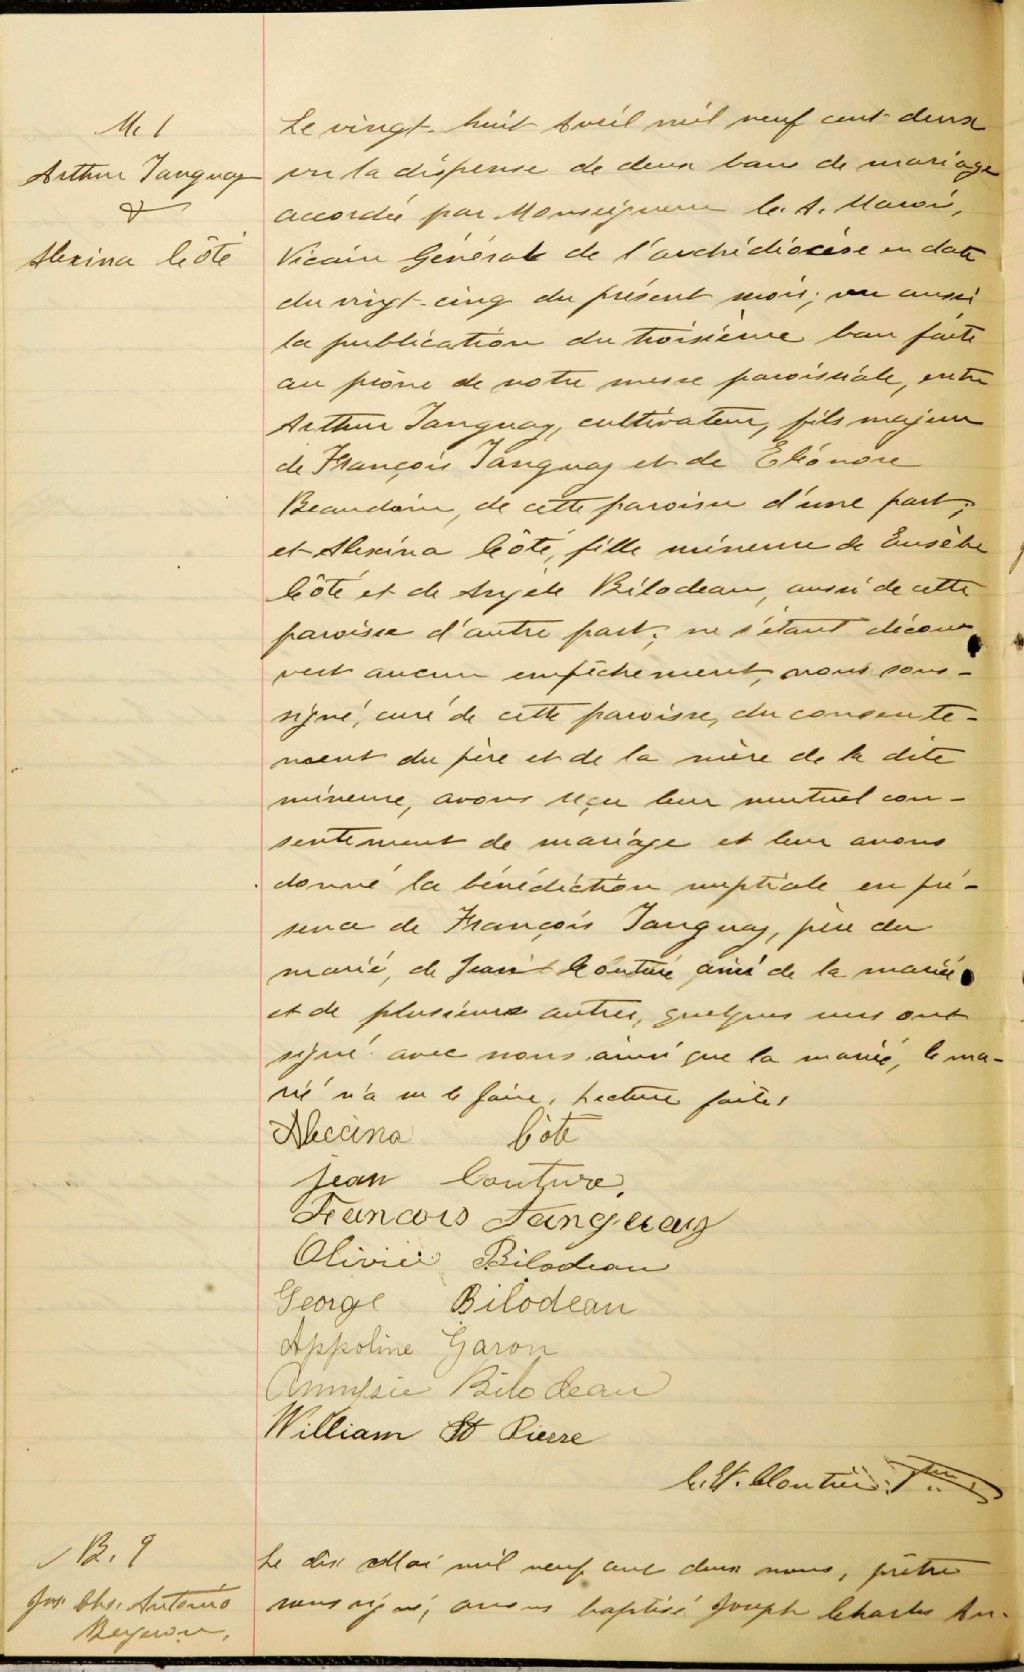 M. 1
Arthur Tanguay
&
Alexina Côté
Le vingt-huit Avril mil neuf cent deux
vu la dispense de deux bans de mariage
accordée par Monseigneur C. A. Marois,
Vicaire Général de l'archidiocèse en date
du vingt-cinq du présent mois; vu aussi
la publication du troisième ban faite
au prône de notre messe paroissiale, entre
Arthur Tanguay, cultivateur, fils majeur
de François Tanguay et de Eléonore
Beaudoin, de cette paroisse d'une part;
et Alexina Côté, fille mineure de Eusèbe
Côté et de Angèle Bilodeau, aussi de cette
paroisse d'autre part; ne s'étant décou
vert aucun empêchement, nous sous-
signé, curé de cette paroisse, du consente-
ment du père et de la mère de la dite
mineure, avons reçu leur mutuel con-
sentement de mariage et leur avons
donné la bénédiction nuptiale en pré-
sence de François Tanguay, père du
marié, de Jean Couture ami de la mariée
et de plusieurs autres, quelques uns ont
signé avec nous ainsi que la mariée, le ma-
rié n'a su le faire. Lecture faite.
Aleccina Côté
jean Couture.
Francois Tanguay
Olivier Bilodeau
George Bilodeau
Appoline Garon
Bilodeau
William St Pierre
Cloutier Ptre
B. 9
Jos. Chs. Antonio
Bergeron.
Le dix Mai mil neuf cent deux nous, prêtre
soussigné, avons baptisé Joseph Charles An-